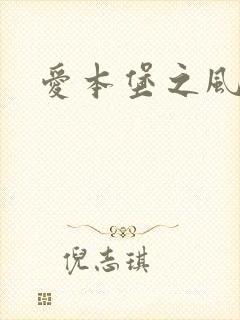 愛本堡之風
倪志琪